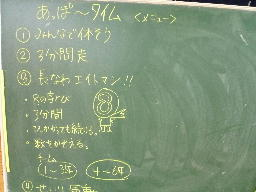 あっぱ〜タイム <メニュー>
① みんなで体そう
② 3分間走
③ 長なわエイトマン!!
・8の字とび
8
・3分間
・ひっかかっても続ける。
・数をかぞえる。
チーム
1〜3年 4〜6年
④